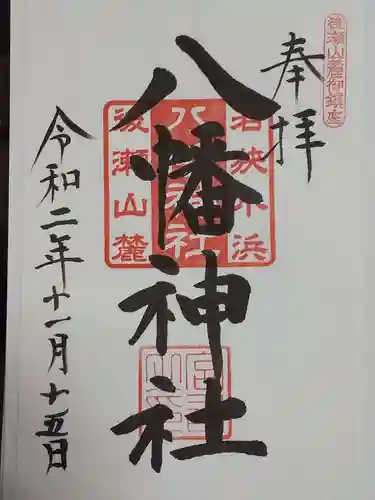 後瀬山麓御鎮座
奉拝
八幡神社
若狭小浜
八幡神社
後瀬山麓
令和二年十一月十五日